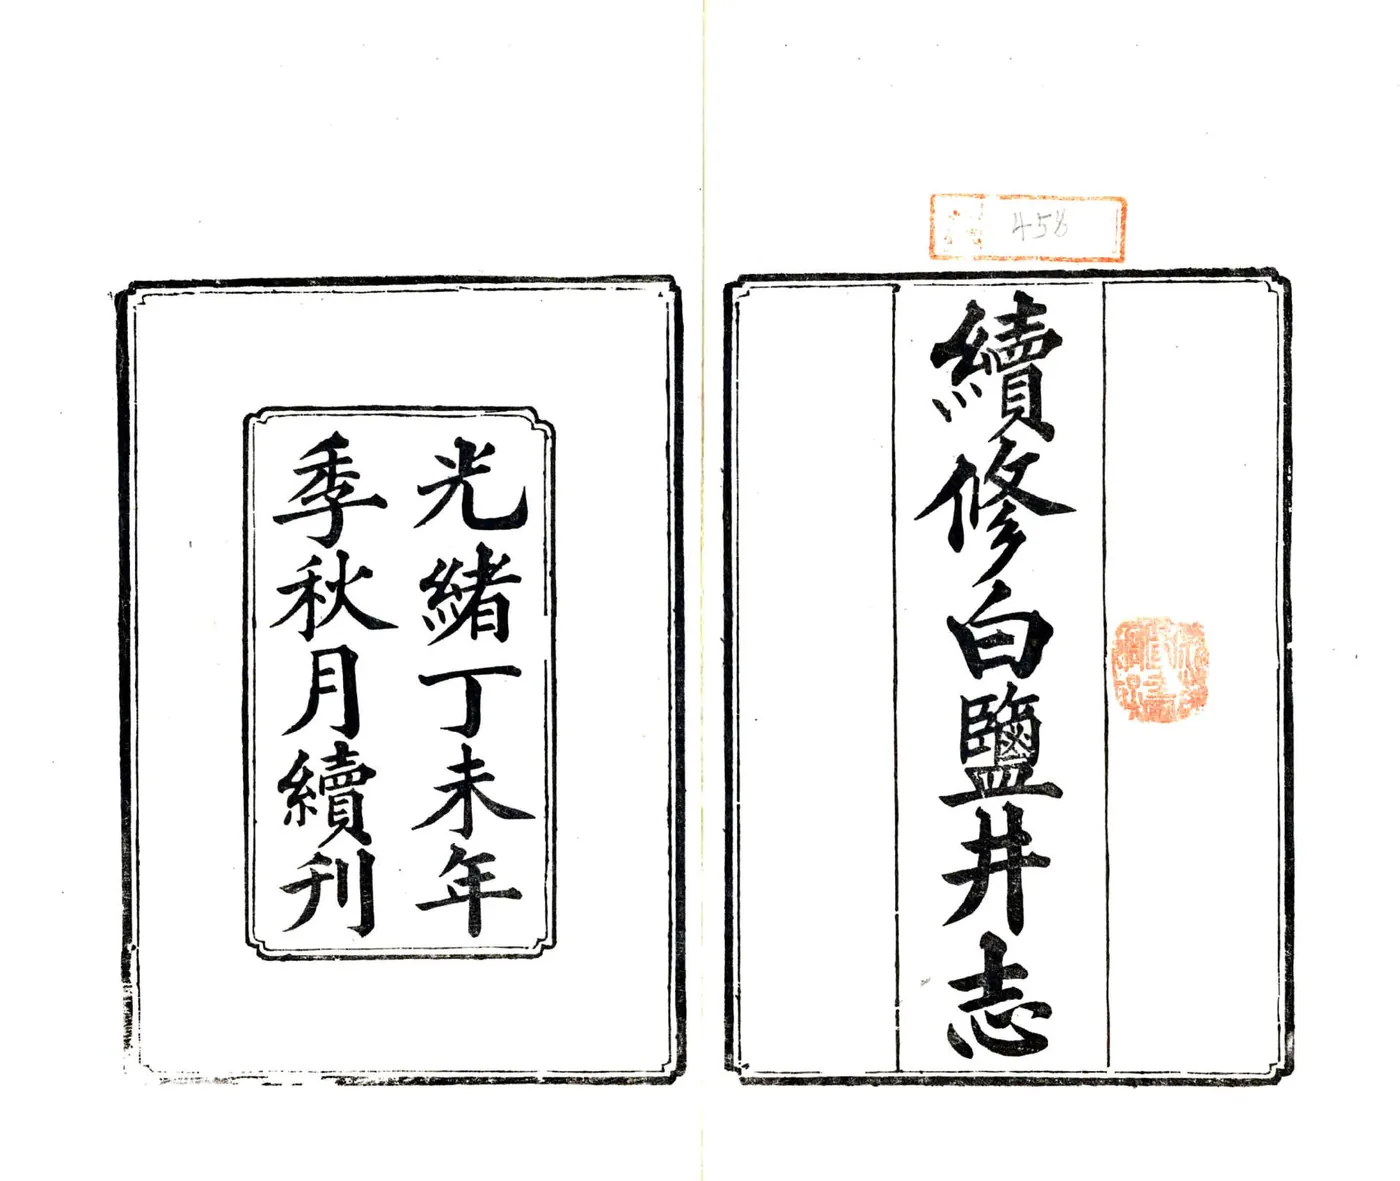 續修白鹽井志
458
光緒丁未年
季秋月續刊